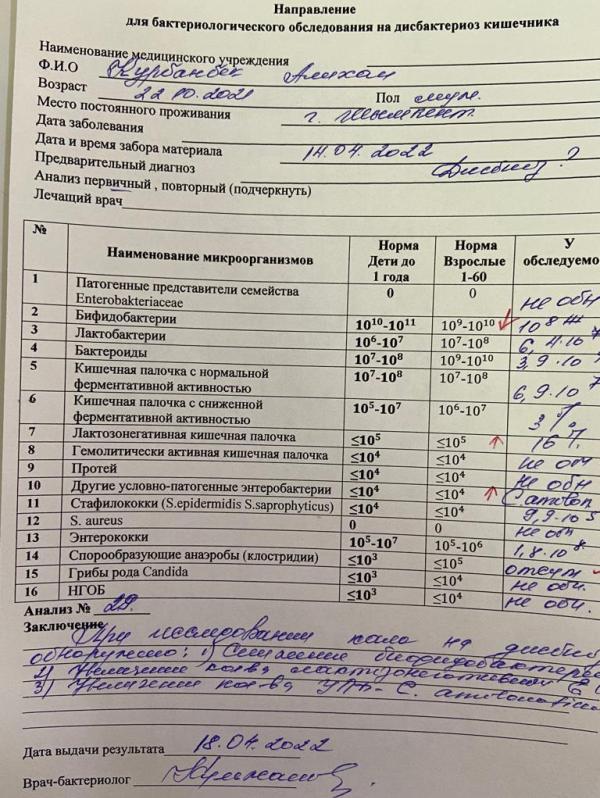 Направление
для бактериологического обследования на дисбактериоз кишечника
Наименование медицинского учреждения
Ф.И.О Курбанбек Алихан
Возраст 22.10.2021 Пол муж.
Место постоянного проживания г. Шымкент.
Дата заболевания
Дата и время забора материала 14.04.2022
Предварительный диагноз Дисбиоз?
Анализ первичный , повторный (подчеркнуть)
Лечащий врач
№ Наименование микроорганизмов Норма Дети до 1 года Норма Взрослые 1-60 У обследуемо
1 Патогенные представители семейства Enterobakteriaceae 0 0 не обн
2 Бифидобактерии 10¹⁰-10¹¹ 10⁹-10¹⁰ 10⁸
3 Лактобактерии 10⁶-10⁷ 10⁷-10⁸ 6,4·10⁷
4 Бактероиды 10⁷-10⁸ 10⁹-10¹⁰ 3,9·10⁷
5 Кишечная палочка с нормальной ферментативной активностью 10⁷-10⁸ 10⁷-10⁸ 6,9·10⁷
6 Кишечная палочка с сниженной ферментативной активностью 10⁵-10⁷ 10⁶-10⁷ 3%
7 Лактозонегативная кишечная палочка ≤10⁵ ≤10⁵ 16%
8 Гемолитически активная кишечная палочка ≤10⁴ ≤10⁴ не обн
9 Протей ≤10⁴ ≤10⁴ не обн
10 Другие условно-патогенные энтеробактерии ≤10⁴ ≤10⁴
11 Стафилококки (S.epidermidis S.saprophyticus) ≤10⁴ ≤10⁴ 9,9·10³
12 S. aureus 0 0 не обн
13 Энтерококки 10⁵-10⁷ 10⁵-10⁶ 1,8·10⁸
14 Спорообразующие анаэробы (клостридии) ≤10³ ≤10⁵ отсут
15 Грибы рода Candida ≤10³ ≤10⁴ не обн.
16 НГОБ ≤10³ ≤10⁴ не обн.
Анализ № 29.
Заключение
При исследовании кала на дисбиоз
обнаружено: 1) Снижение бифидобактерий
2) Увеличение кол-ва лактозонегативной
3) Увеличение кол-ва УПБ- C.
Дата выдачи результата 18.04.2022
Врач-бактериолог